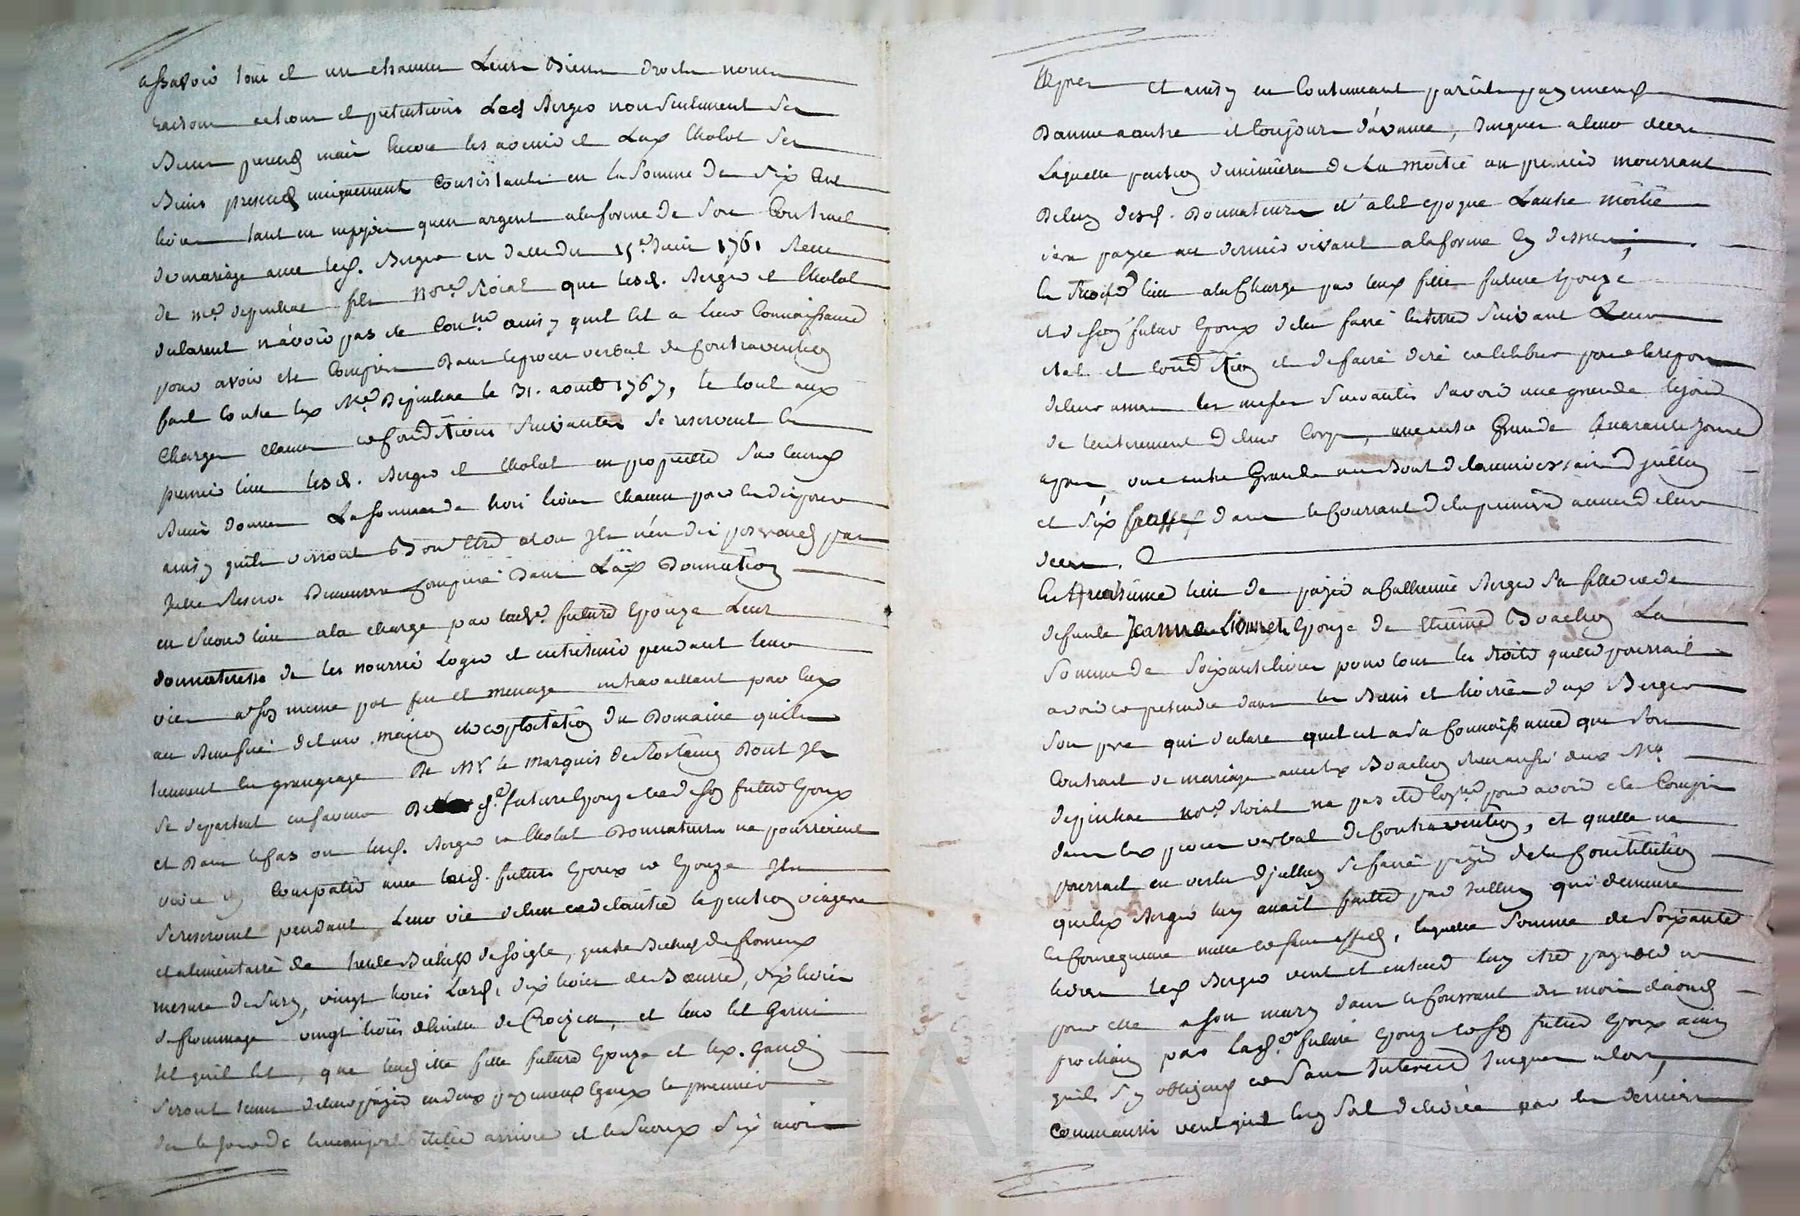 assavoir tout et un chacun Leurs Biens droits noms
raisons actions et pretentions Led Berger non seulement ses
Biens presents mais encore les avenir et Lad Cholat ses
Biens presents uniquement Consistants en la somme de six cent
livres tant en argent a la forme de son Contract
de mariage avec led. Berger en datte du 15e Juin 1761 Recu
de Me depinhac fils Nore Roial que lesd. Berger et Cholat
declarent n'avoir pas ete Conlle ainsy quil est a leur Connaissance
pour avoir ete Compris Dans le proces verbal de Contravention
fait contre led Me Depinhac le 31. aoust 1767, le tout aux
Charges Clauses et Conditions Suivantes Se reservent en
premier lieu lesd. Berger et Cholat en propriette sur leurs
Biens donnes La somme de trois livres chacun pour en disposer
ainsy quils verront Bon Etre et ou Ils n'en disposeroient pas
Telle Reserve Demeurera Comprise Dans Lad Donnation
en second lieu a la charge par lad. future Epouze Leur
donnatresse de les nourrir Loger et entretenir pendant leur
vie a son meme pot feu et menage en travaillant par eux
au Beneffice de leur maison et exploitation du Domaine quils
tiennent en grangeage De Mr. le Marquis de Rostaing Dont Ils
se departent en faveur De lad. future Epouze et de son futur Epoux
et Dans le Cas ou lesd. Berger et Cholat Donnateurs ne pourroient
vivre et Compatir avec lesd. futurs Epoux et Epouze Ils
se reservent pendant Leur vie de l'un et de l'autre la pention viagere
et alimentaire de trente Bichets de soigle, quatre Bichets de froment
mesure de Sury, vingt livres Lard, dix livres de Beurre, dix livres
de frommage vingt livres d'huille de et leur lit Garni
tel quil est, que lad fille future Epouze et led. Gaudin
seront tenus de leur payer en deux payements Egaux le premier
des le jour de arrivee et le second six mois
Apres et ainsy en Continuant pareils payements
D'annee a autre et toujour d'avance, Jusques a leur deces
Laquelle pention diminuera de La moitie au premier mourrant
De l'un desd. Donnateurs et a la epoque Lautre moitie
sera payee au dernier vivant a la forme Cy dessus;
En Troise lieu a la Charge par leur fille future Epouze
et de son futur Epoux de leur faire Suivant Leur
etat et Condition et de faire dire et Celebrer pour le repos
de leur ames les messes Suivantes Savoir une grande le jour
de l'enterrement de leur Corps, une autre Grande Quarante Jours
apres, une autre Grande au Bout de l'anniversaire d'jcelluy
et six basses dans le Courrant de la premiere annee de leur
deces.
En quatrieme lieu de payer a Catherine Berger sa fille et de
defunte Jeanne Lionnet Epouze de Etienne Boachon La
somme de soixante livres pour tous les droits quelle pourroit
avoir et pretendre dans les Biens et hoirie dud Berger
son pere qui declare quil est a sa Connaissance que son
Contrait de mariage avec led Boachon Recu aussi dud Me
depinhac nore Roial na pas ete Conlle pour avoir ete Compris
dans led proces verbal de Contravention, et quelle ne
pourroit en vertu d'jcelluy se faire payer de la Constitution
que led Berger luy avoit faitte par Icelluy qui demeure
en Consequence nulle et sans effet, laquelle somme de soixante
livres led Berger veut et entend luy etre payee
pour elle a son mary dans le Courrant du mois daoust
prochain par lad. future Epouze et son futur Epoux ainsy
quils s'y obligent et sans Interest Jusques alors,
comme aussi veut quil luy soit delivree par les derniers